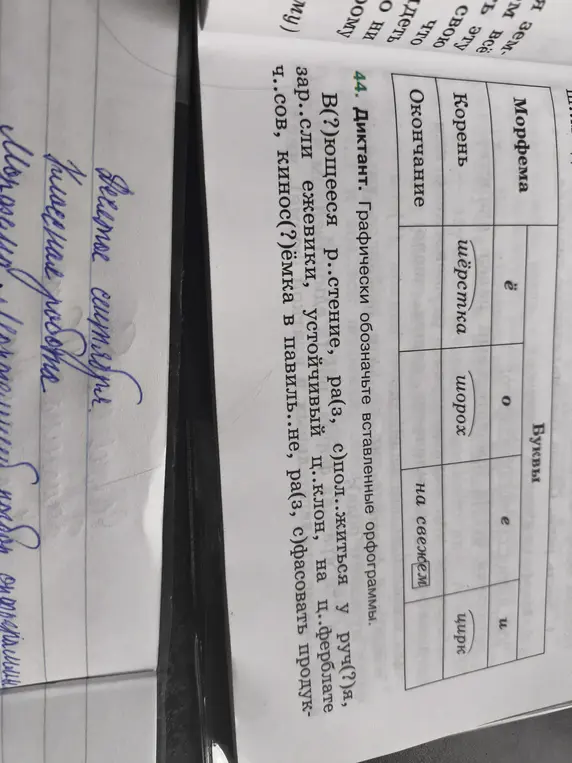 Буквы
Морфема ё о е и
Корень шёрстка шорох цирк
Окончание на свежем
44. Диктант. Графически обозначьте вставленные орфограммы.
В(?)ющееся р..стение, ра(з, с)пол..житься у руч(?)я,
зар..сли ежевики, устойчивый ц..клон, на ц..ферблате
ч..сов, кинос(?)ёмка в павиль..не, ра(з, с)фасовать продук-
я зем,
ум всё
эту
свою
что
идеть
о ни
рому
му)
сентября.
Классная работа.